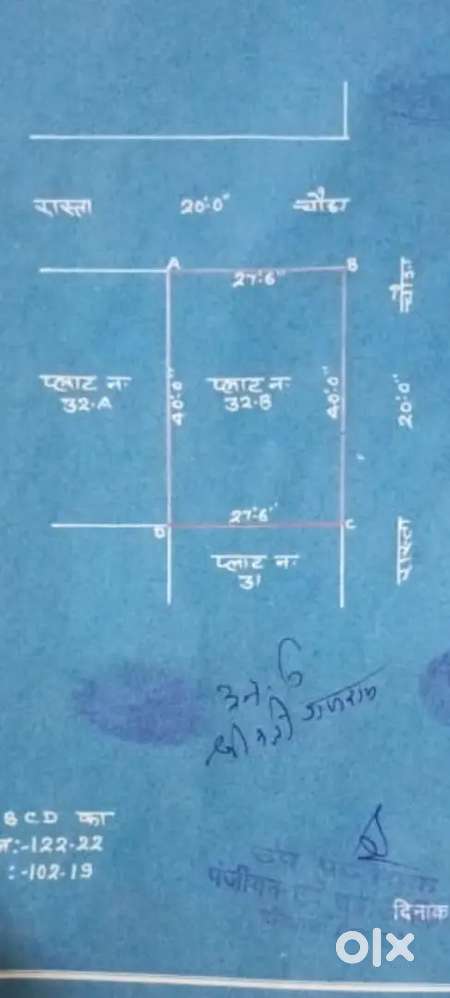 रास्ता 20'-0" चौड़ा
A B
27'-6"
चौड़ा
प्लाट नः
32-A
40'-0"
प्लाट नः
32-B
40'-0"
20'-0"
27'-6"
D C
रास्ता
प्लाट नः
31
B C D का
:-122-22
:-102-19
पंजीयन
दिनांक
olx